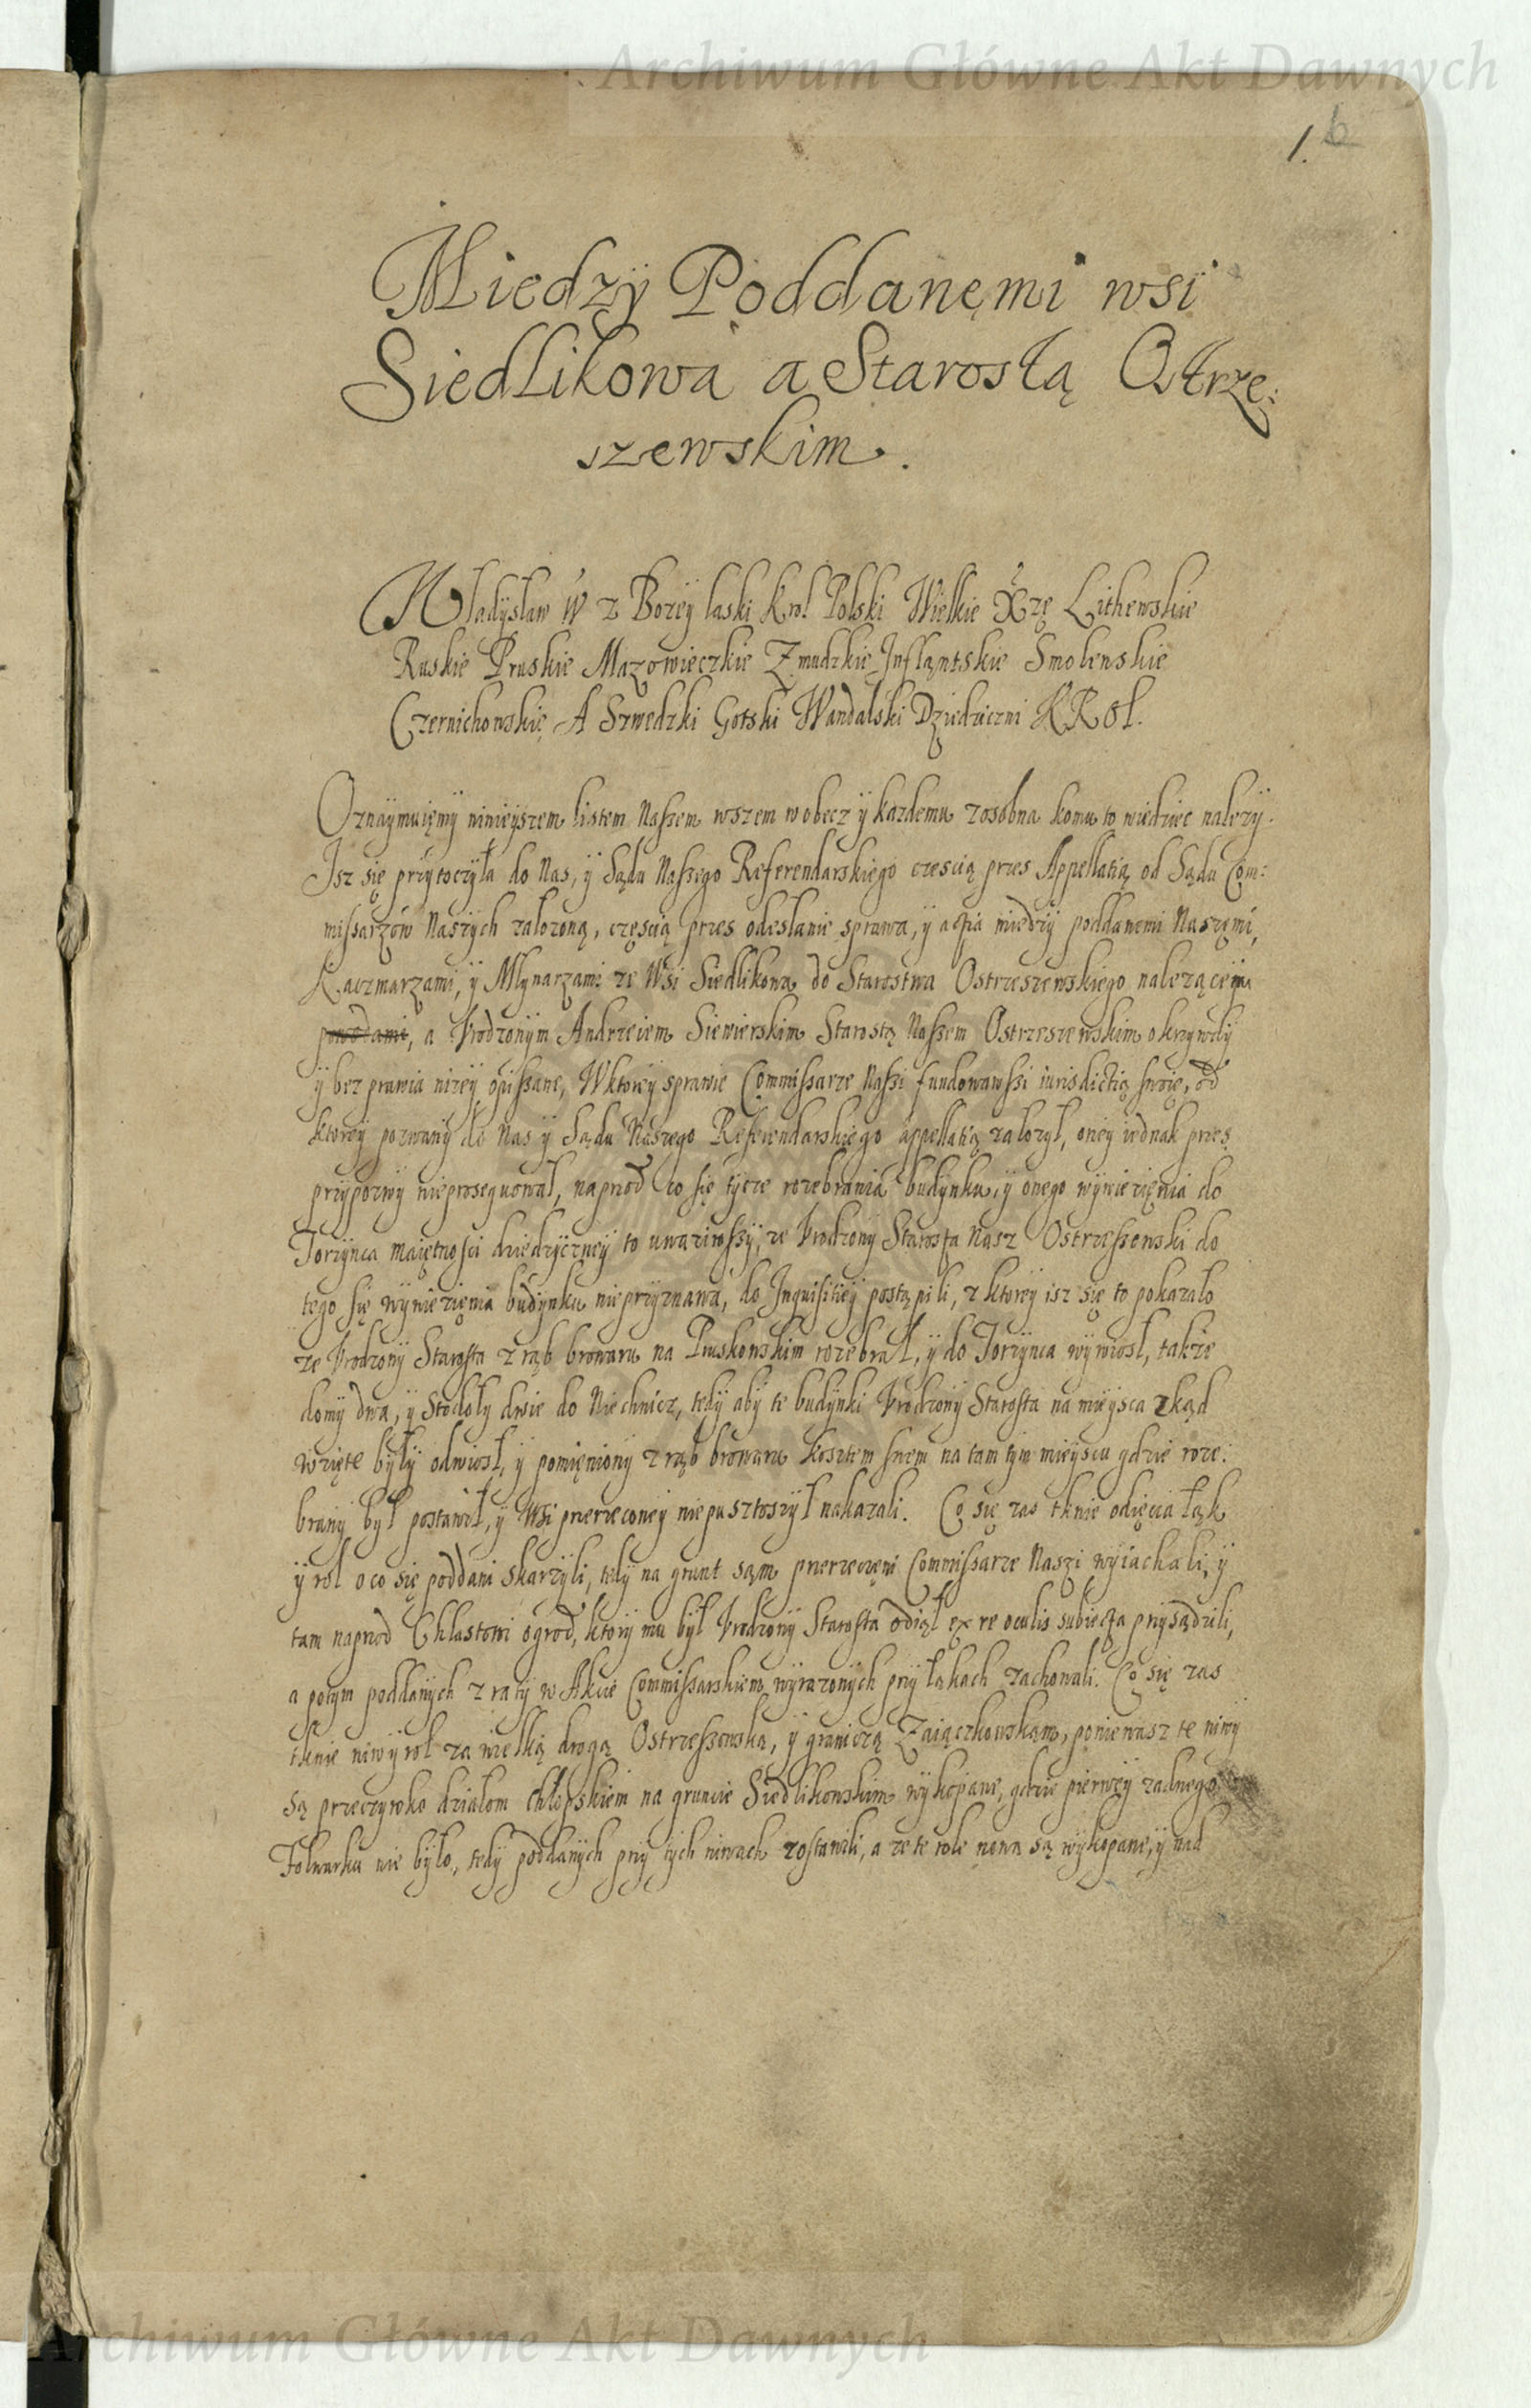 Archiwum Główne Akt Dawnych
1. 6
Miedzÿ Poddanęmi wsi
Siedlikowa a Starostą Ostrze:
szewskim.
Władÿsław IV z Bozeÿ laski Krol Polski Wielkie Xżę Lithewskie
Ruskie Pruskie Mazowieczkie Zmudzkie Inflantskie Smolenskie
Czernichowskię A Szwedzki Gotski Wandalski Dziedziczni KRol.
Oznaÿmuięmÿ ninieÿszem listem Naszem wszem wobecz ÿ kazdemu zosobna komu to wiedziec nalezÿ.
Isz się prźÿtoczÿła do Nas, ÿ Sądu Naszego Referendarskiego czescią przes Appellatią od Sądu Com:
missarzów Naszÿch załozoną, częscią przes odesłanie sprawa, ÿ actia miedzÿ poddanemi Naszęmi,
Kaczmarzami, ÿ Młÿnarzami ze Wsi Siedlikowa do Starostwa Ostrzeszewskiego nalezącęm
powodami, a Vrodzonÿm Andrzeiem Siewierskim Starostą Naszem Ostrzeszewskim o krzÿwdÿ
ÿ bez prawia nizeÿ opissane, W ktoreÿ sprawie Commissarze Naszi fundowawszi iurisdictią swoię, od
ktoreÿ pozwanÿ do Nas ÿ Sądu Naszego Referendarskiego appellatią załozÿł, oneÿ iednak przes
przÿpozwÿ nieprosequował, naprzod co się tÿcze rozebrania budÿnku, ÿ onego wÿwiezięnia do
Torzÿnca maiętnosci dziedzÿcznеÿ to uwaziwszÿ, ze Vrodzonÿ Starosta Nasz Ostrzeszewski do
tego się wÿwiezięnia budÿnku nieprzÿznawa, do Inquisitieÿ postąpili, z ktoreÿ isz się to pokazało
ze Vrodzonÿ Starosta zrąb browaru na Pruskowskim rozebrał, ÿ do Torzÿnca wÿwiosł, takze
domÿ dwa, ÿ Stodołÿ dwie do Niechnicz, tedÿ abÿ te budÿnki Vrodzonÿ Starosta na mieÿsca zkąd
wzięte bÿłÿ odwiosł, ÿ pomięnionÿ zrąb browaru kosztem swem na tam tÿm mieÿscu gdzie roze:
branÿ bÿł postawił, ÿ Wsi przerzeconeÿ niepusztoszÿł nakazali. Co się zas tknie odięcia łąk
ÿ rol o co się poddani skarzÿli, tedÿ na grunt sąm przerzeczęni Commissarze Naszi wÿiachali, ÿ
tam naprzod Chlastowi ogrod, ktorÿ mu bÿł Vrodzonÿ Starosta odiął ex re oculis subiecta przÿsądzili,
a potÿm poddanÿch z ratÿ w Akcie Commissarskiem wÿrazonÿch przÿ łąkach zachowali. Co się zas
tknie niwÿ rol za wielką drogą Ostrzeszowską, ÿ granicą Zaiączkowskąm, poniewasz te niwÿ
są przeczÿwko działom chłopskiem na gruncie Siedlikowskim wÿkopane, gdzie pierwzÿ zadnego
Folwarku nie bÿło, tedÿ poddanÿch przÿ tÿch niwach zostawili, a ze te role nowa są wÿkopane, ÿ nad
Archiwum Główne Akt Dawnych